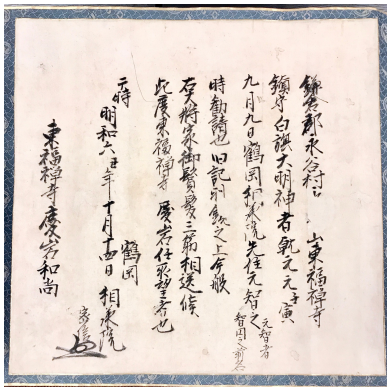 鎌倉郡永谷村 山東福禅寺
鎮守白旗大明神者乾元元壬寅
九月九日鶴岡相承院先住元智之
元智者
智円之前名
時勧請也旧記別録之上今般
右大将家御鬢髪三筋相送候
此度東福禅寺慶岩任所望者也
于時明和六丑年十月十四日 鶴岡相承院
東福禅寺慶岩和尚